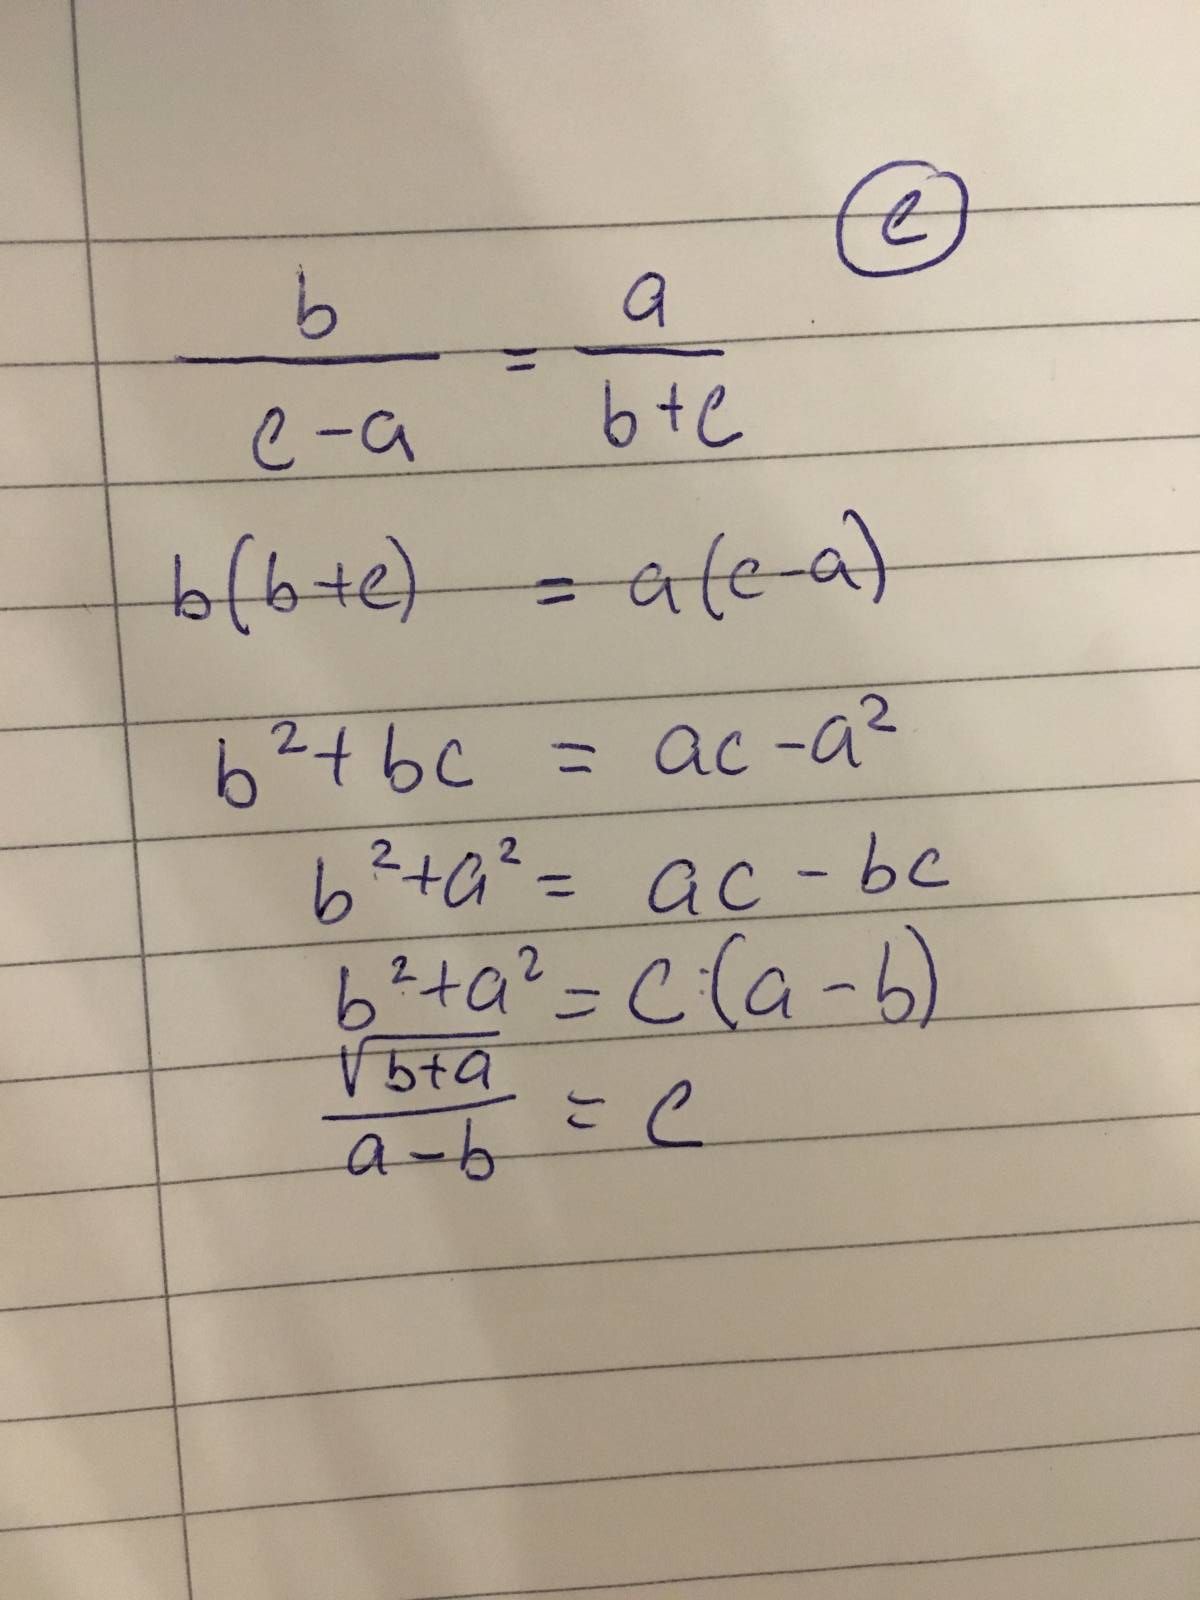 c
b/(c-a) = a/(b+c)
b(b+c) = a(c-a)
b²+bc = ac-a²
b²+a² = ac-bc
b²+a² = c·(a-b)
√(b+a)/(a-b) = c